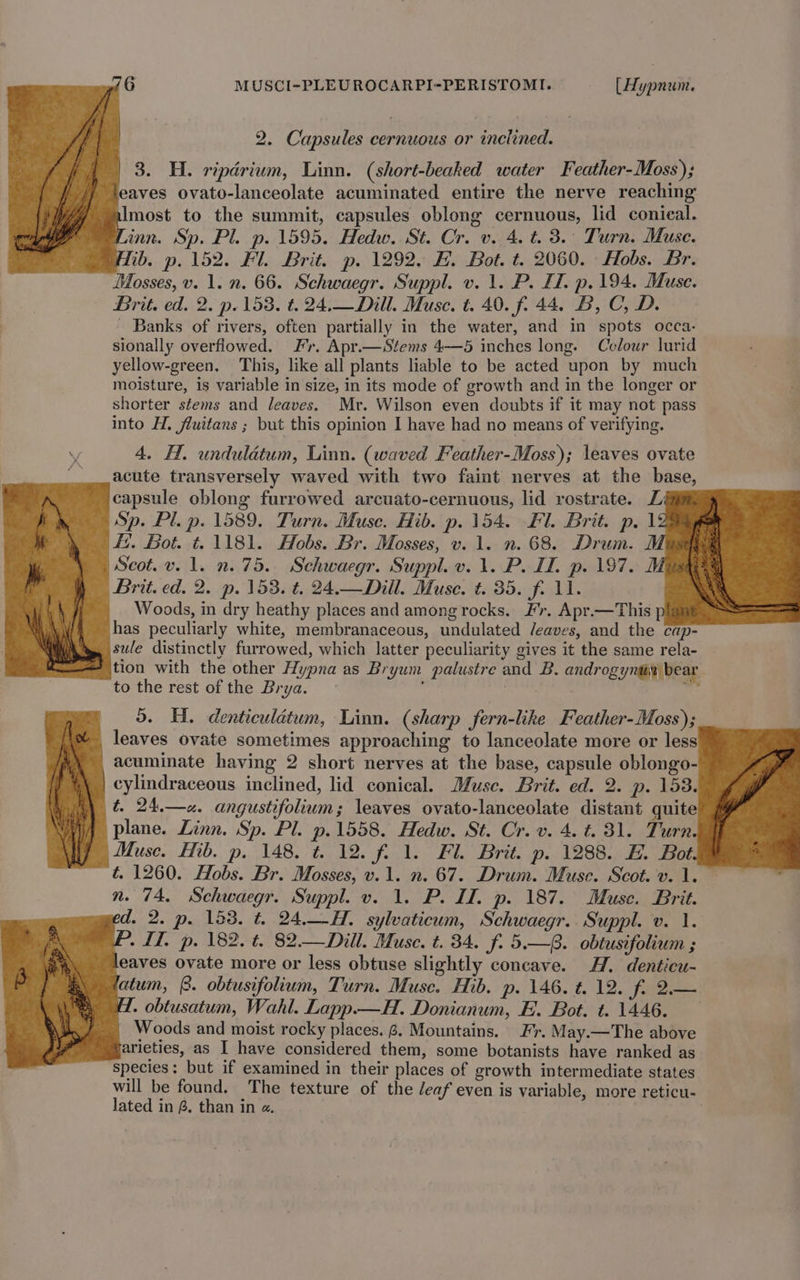 76 MUSCI-PLEUROCARPI-PERISTOMI. [Hypnum.
2. Capsules cernuous or inclined.
3. H. ripárium, Linn. (short-beaked water Feather-Moss);
leaves ovato-lanceolate acuminated entire the nerve reaching
almost to the summit, capsules oblong cernuous, lid conical.
Linn. Sp. Pl. p. 1595. Hedw. St. Cr. v. 4. t. 3. Turn. Musc.
Hib. p. 152. Fl. Brit. p. 1292. E. Bot. t. 2060. Hobs. Br.
Mosses, v. 1. n. 66. Schwaegr. Suppl. v. 1. P. II. p. 194. Musc.
Brit. ed. 2. p. 153. t. 24.—Dill. Musc. t. 40. f. 44. B, C, D.
Banks of rivers, often partially in the water, and in spots occa-
sionally overflowed. Fr. Apr.—Stems 4—5 inches long. Colour lurid
yellow-green. This, like all plants liable to be acted upon by much
moisture, is variable in size, in its mode of growth and in the longer or
shorter stems and leaves. Mr. Wilson even doubts if it may not pass
into H. fluitans; but this opinion I have had no means of verifying.
4. H. undulátum, Linn. (waved Feather-Moss); leaves ovate
acute transversely waved with two faint nerves at the base,
capsule oblong furrowed arcuato-cernuous, lid rostrate. Linn.
Sp. Pl. p. 1589. Turn. Musc. Hib. p. 154. Fl. Brit. p.
E. Bot. t. 1181. Hobs. Br. Mosses, v. 1. n. 68. Drum.
Scot. v. 1. n. 75. Schwaegr. Suppl. v. 1. P. II. p. 197.
Brit. ed. 2. p. 153. t. 24.—Dill. Musc. t. 35. f. 11.
Woods, in dry heathy places and among rocks. Fr. Apr.—This plant
has peculiarly white, membranaceous, undulated leaves, and the cap-
sule distinctly furrowed, which latter peculiarity gives it the same rela-
tion with the other Hypna as Bryum palustre and B. androgynum bear
to the rest of the Brya.
5. H. denticulátum, Linn. (sharp fern-like Feather-Moss);
leaves ovate sometimes approaching to lanceolate more or less
acuminate having 2 short nerves at the base, capsule oblongo-
cylindraceous inclined, lid conical. Musc. Brit. ed. 2. p. 153.
t. 24.—α. angustifolium; leaves ovato-lanceolate distant quite
plane. Linn. Sp. Pl. p. 1558. Hedw. St. Cr. v. 4. t. 31. Turn.
Musc. Hib. p. 148. t. 12. f. 1. Fl. Brit. p. 1288. E. Bot.
t. 1260. Hobs. Br. Mosses, v. 1. n. 67. Drum. Musc. Scot. v. 1.
n. 74. Schwaegr. Suppl. v. 1. P. II. p. 187. Musc. Brit.
ed. 2. p. 153. t. 24.—H. sylvaticum, Schwaegr. Suppl. v. 1.
P. II. p. 182. t. 82.—Dill. Musc. t. 34. f. 5.—β. obtusifolium;
leaves ovate more or less obtuse slightly concave. H. denticu-
latum, β. obtusifolium, Turn. Musc. Hib. p. 146. t. 12. f. 2.—
H. obtusatum, Wahl. Lapp.—H. Donianum, E. Bot. t. 1446.
Woods and moist rocky places. β. Mountains. Fr. May.—The above
varieties, as I have considered them, some botanists have ranked as
species: but if examined in their places of growth intermediate states
will be found. The texture of the leaf even is variable, more reticu-
lated in β. than in α.